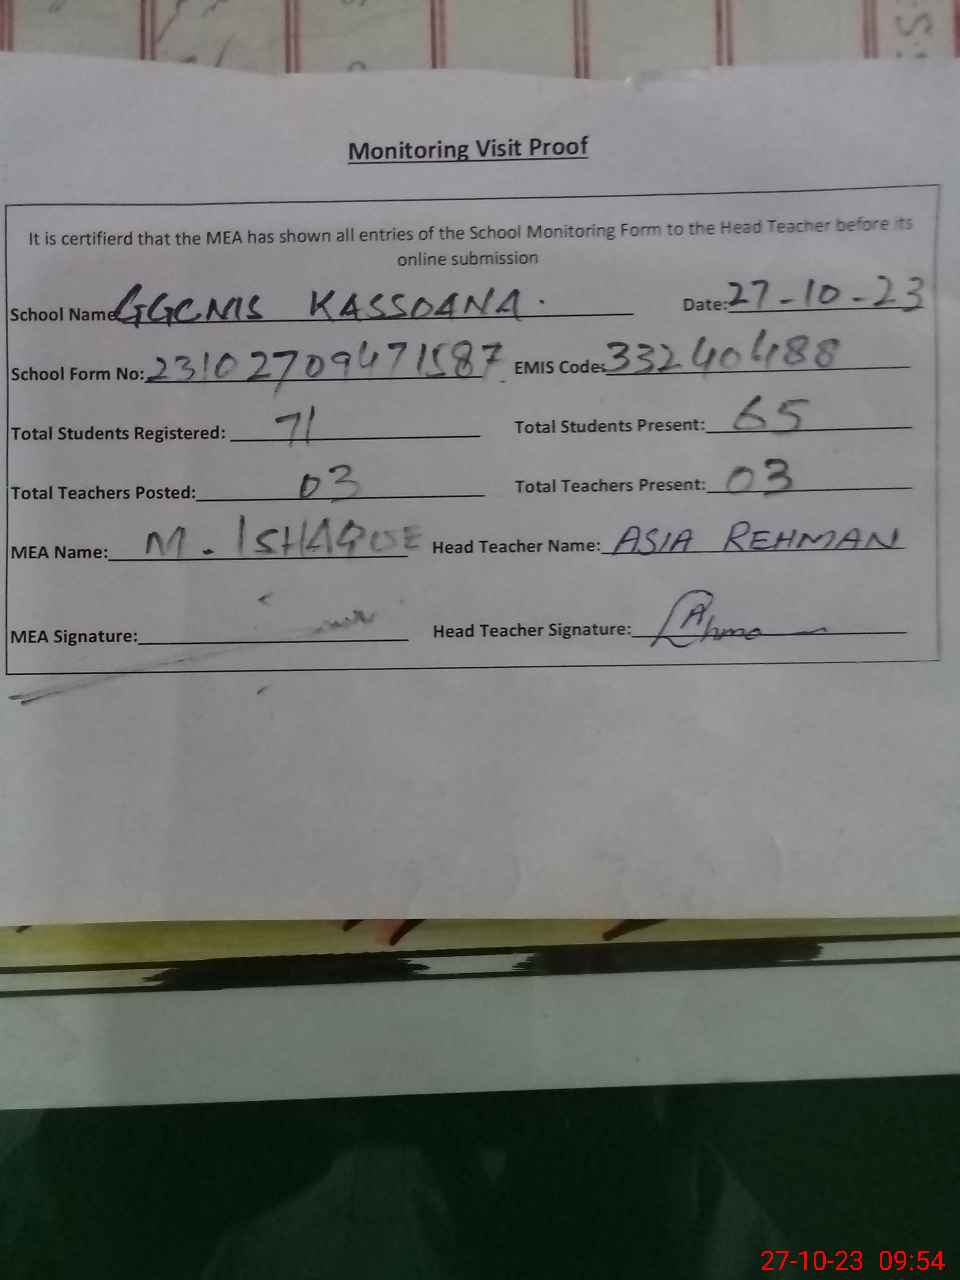 Monitoring Visit Proof
It is certifierd that the MEA has shown all entries of the School Monitoring Form to the Head Teacher before its
online submission
School Name GGCMS KASSOANA. Date: 27-10-23
School Form No: 23102709471587 EMIS Code: 33240488
Total Students Registered: 71 Total Students Present: 65
Total Teachers Posted: 03 Total Teachers Present: 03
MEA Name: M. ISHAQUE Head Teacher Name: ASIA REHMAN
MEA Signature: Head Teacher Signature:
27-10-23 09:54